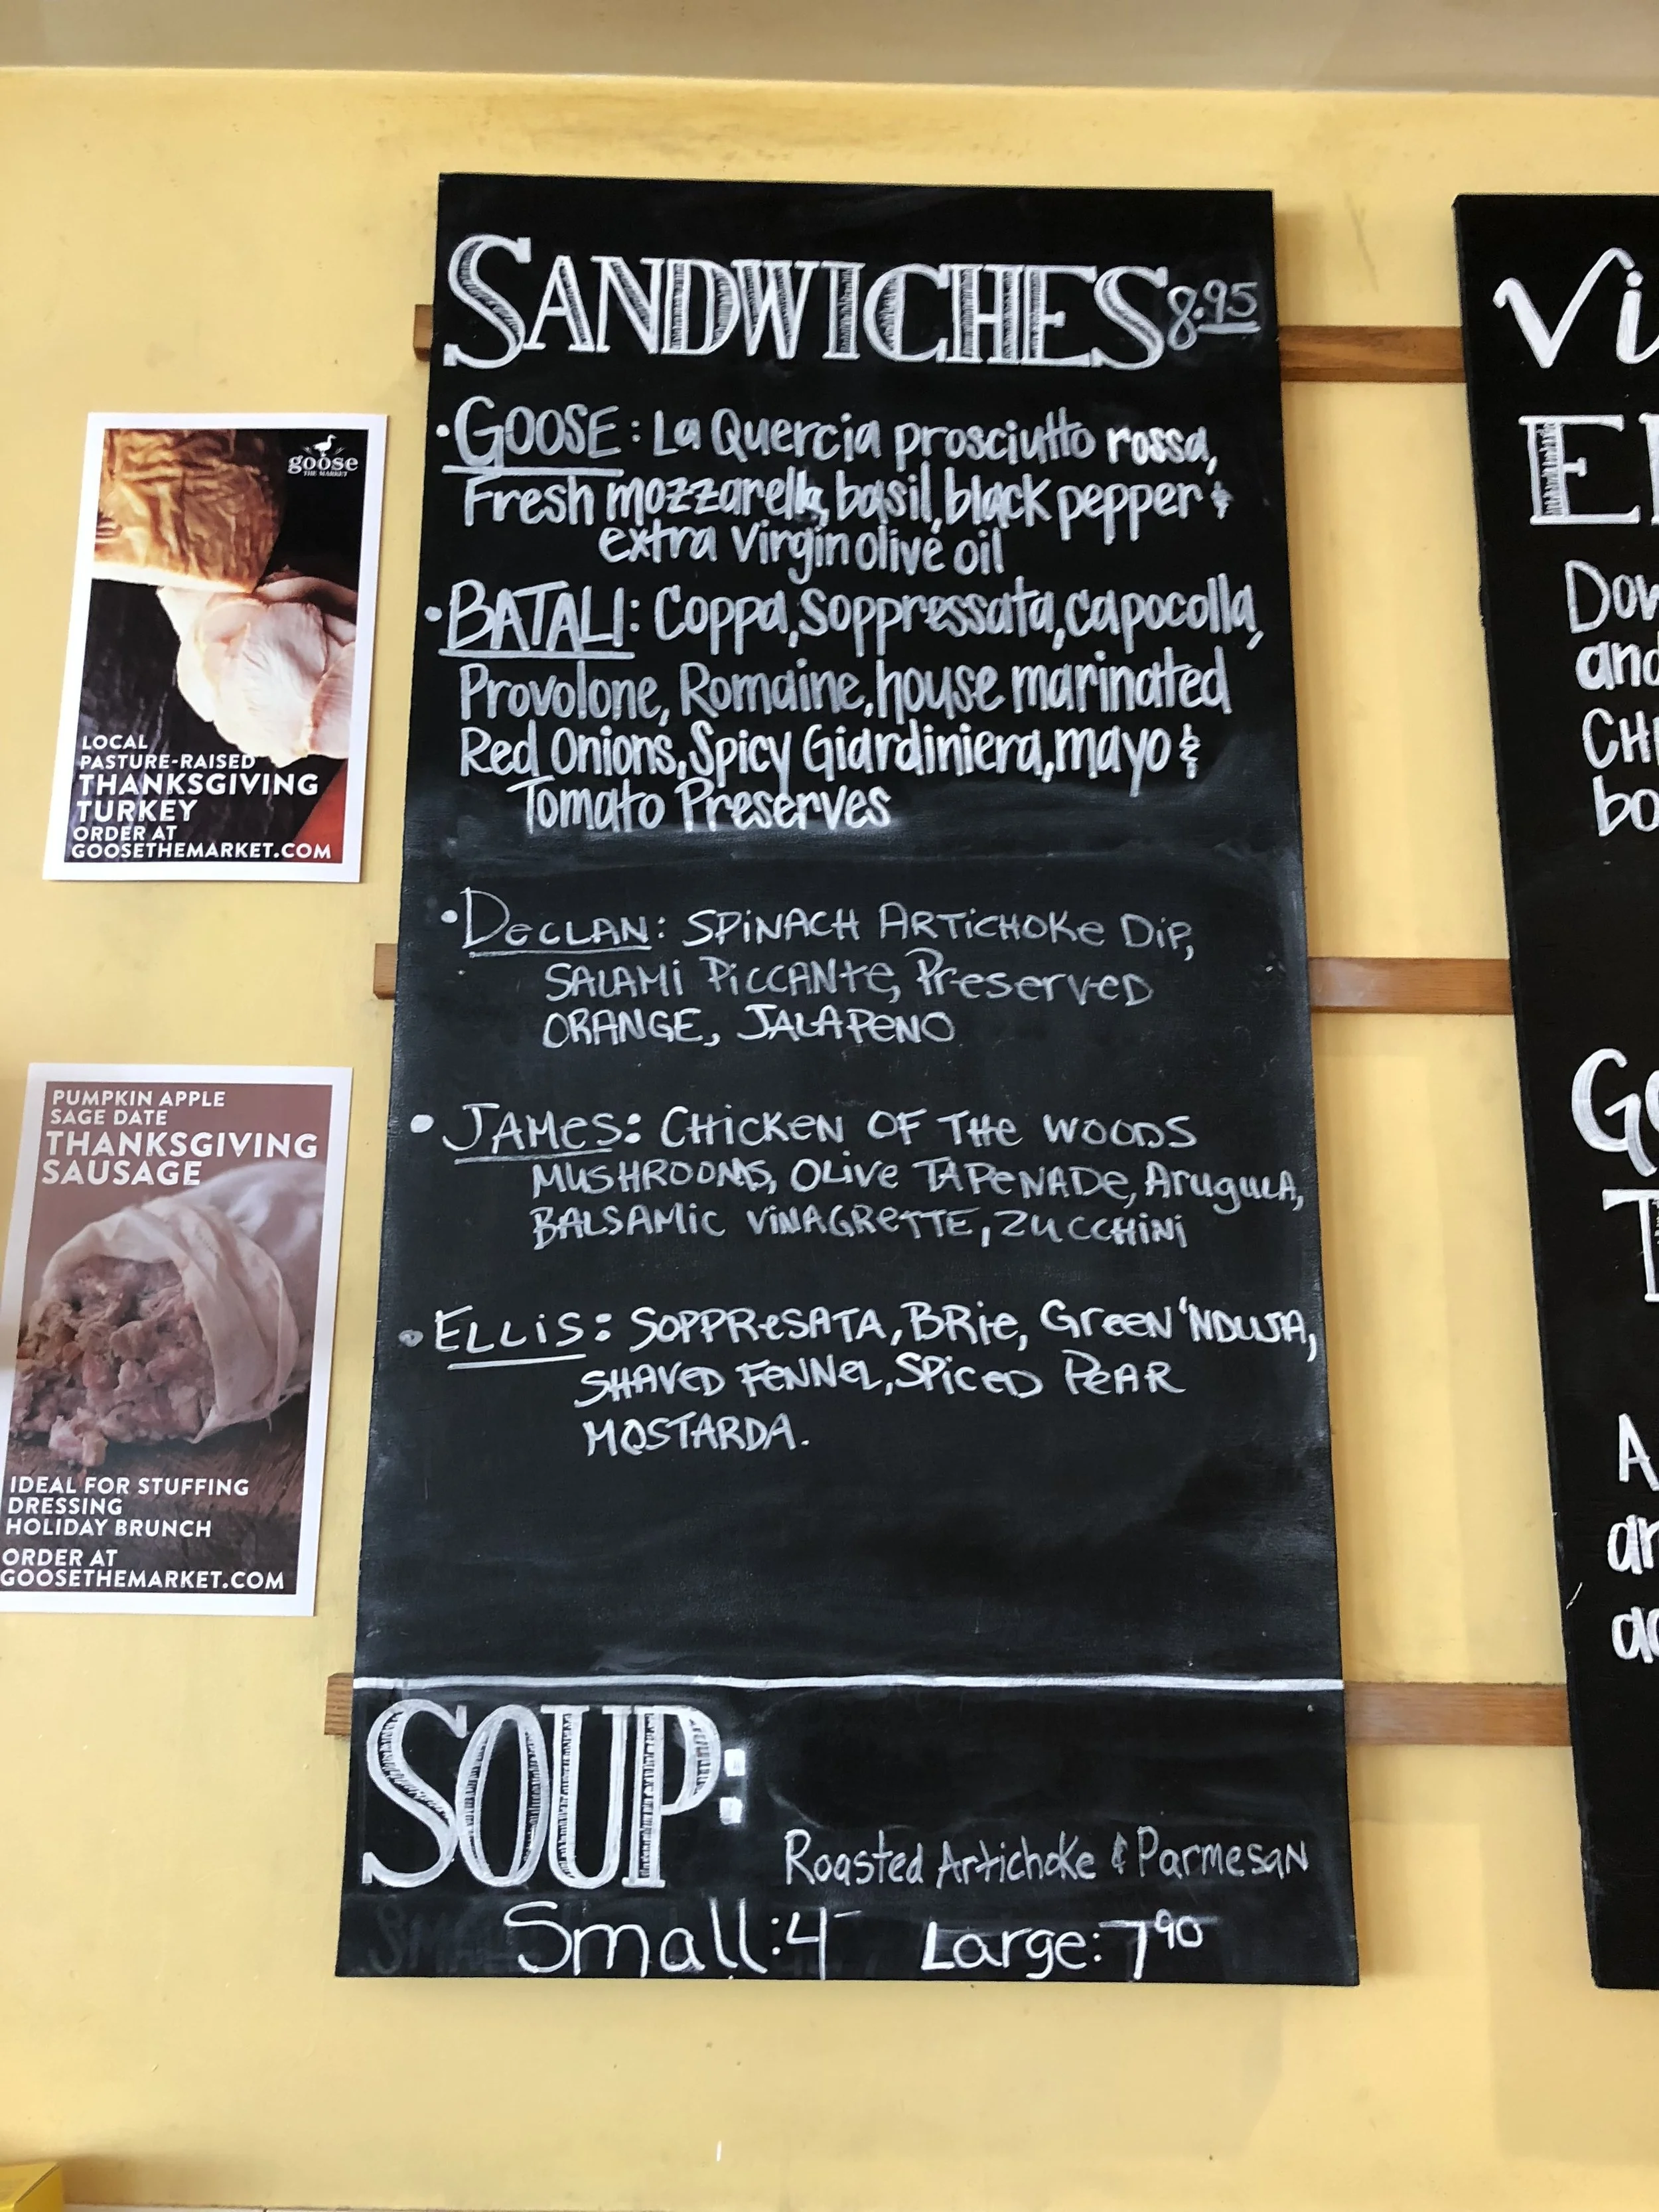 SANDWICHES 8.95
• GOOSE: La Quercia prosciutto rossa,
Fresh mozzarella, basil, black pepper &
extra virgin olive oil
• BATALI: Coppa, Soppressata, capocolla,
Provolone, Romaine, house marinated
Red Onions, Spicy Giardiniera, mayo &
Tomato Preserves
• DECLAN: SPINACH ARTICHOKE DIP,
SALAMI PICCANTE, PRESERVED
ORANGE, JALAPENO
• JAMES: CHICKEN OF THE WOODS
MUSHROOMS, OLIVE TAPENADE, ARUGULA,
BALSAMIC VINAGRETTE, ZUCCHINI
• ELLIS: SOPPRESATA, BRIE, GREEN 'NDUJA,
SHAVED FENNEL, SPICED PEAR
MOSTARDA.
SOUP:
Roasted Artichoke & Parmesan
Small: 4- Large: 7 90
goose
THE MARKET
LOCAL
PASTURE-RAISED
THANKSGIVING
TURKEY
ORDER AT
GOOSETHEMARKET.COM
PUMPKIN APPLE
SAGE DATE
THANKSGIVING
SAUSAGE
IDEAL FOR STUFFING
DRESSING
HOLIDAY BRUNCH
ORDER AT
GOOSETHEMARKET.COM